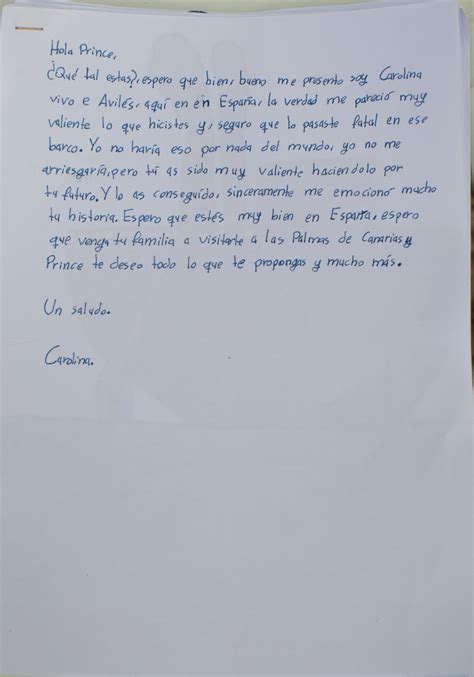 Hola Prince,
¿Qué tal estas?, espero que bien, bueno me presento soy Carolina
vivo e Avilés, aquí en en España, la verdad me pareció muy
valiente lo que hicistes y, seguro que lo pasaste fatal en ese
barco. Yo no haría eso por nada del mundo, yo no me
arriesgaría, pero tú as sido muy valiente haciendolo por
tu futuro. Y lo as conseguído, sinceramente me emocionó mucho
tu historia. Espero que estés muy bien en España, espero
que venga tu familia a visitarte a las Palmas de Canarias y
Prince te deseo todo lo que te propongas y mucho más.
Un saludo.
Carolina.